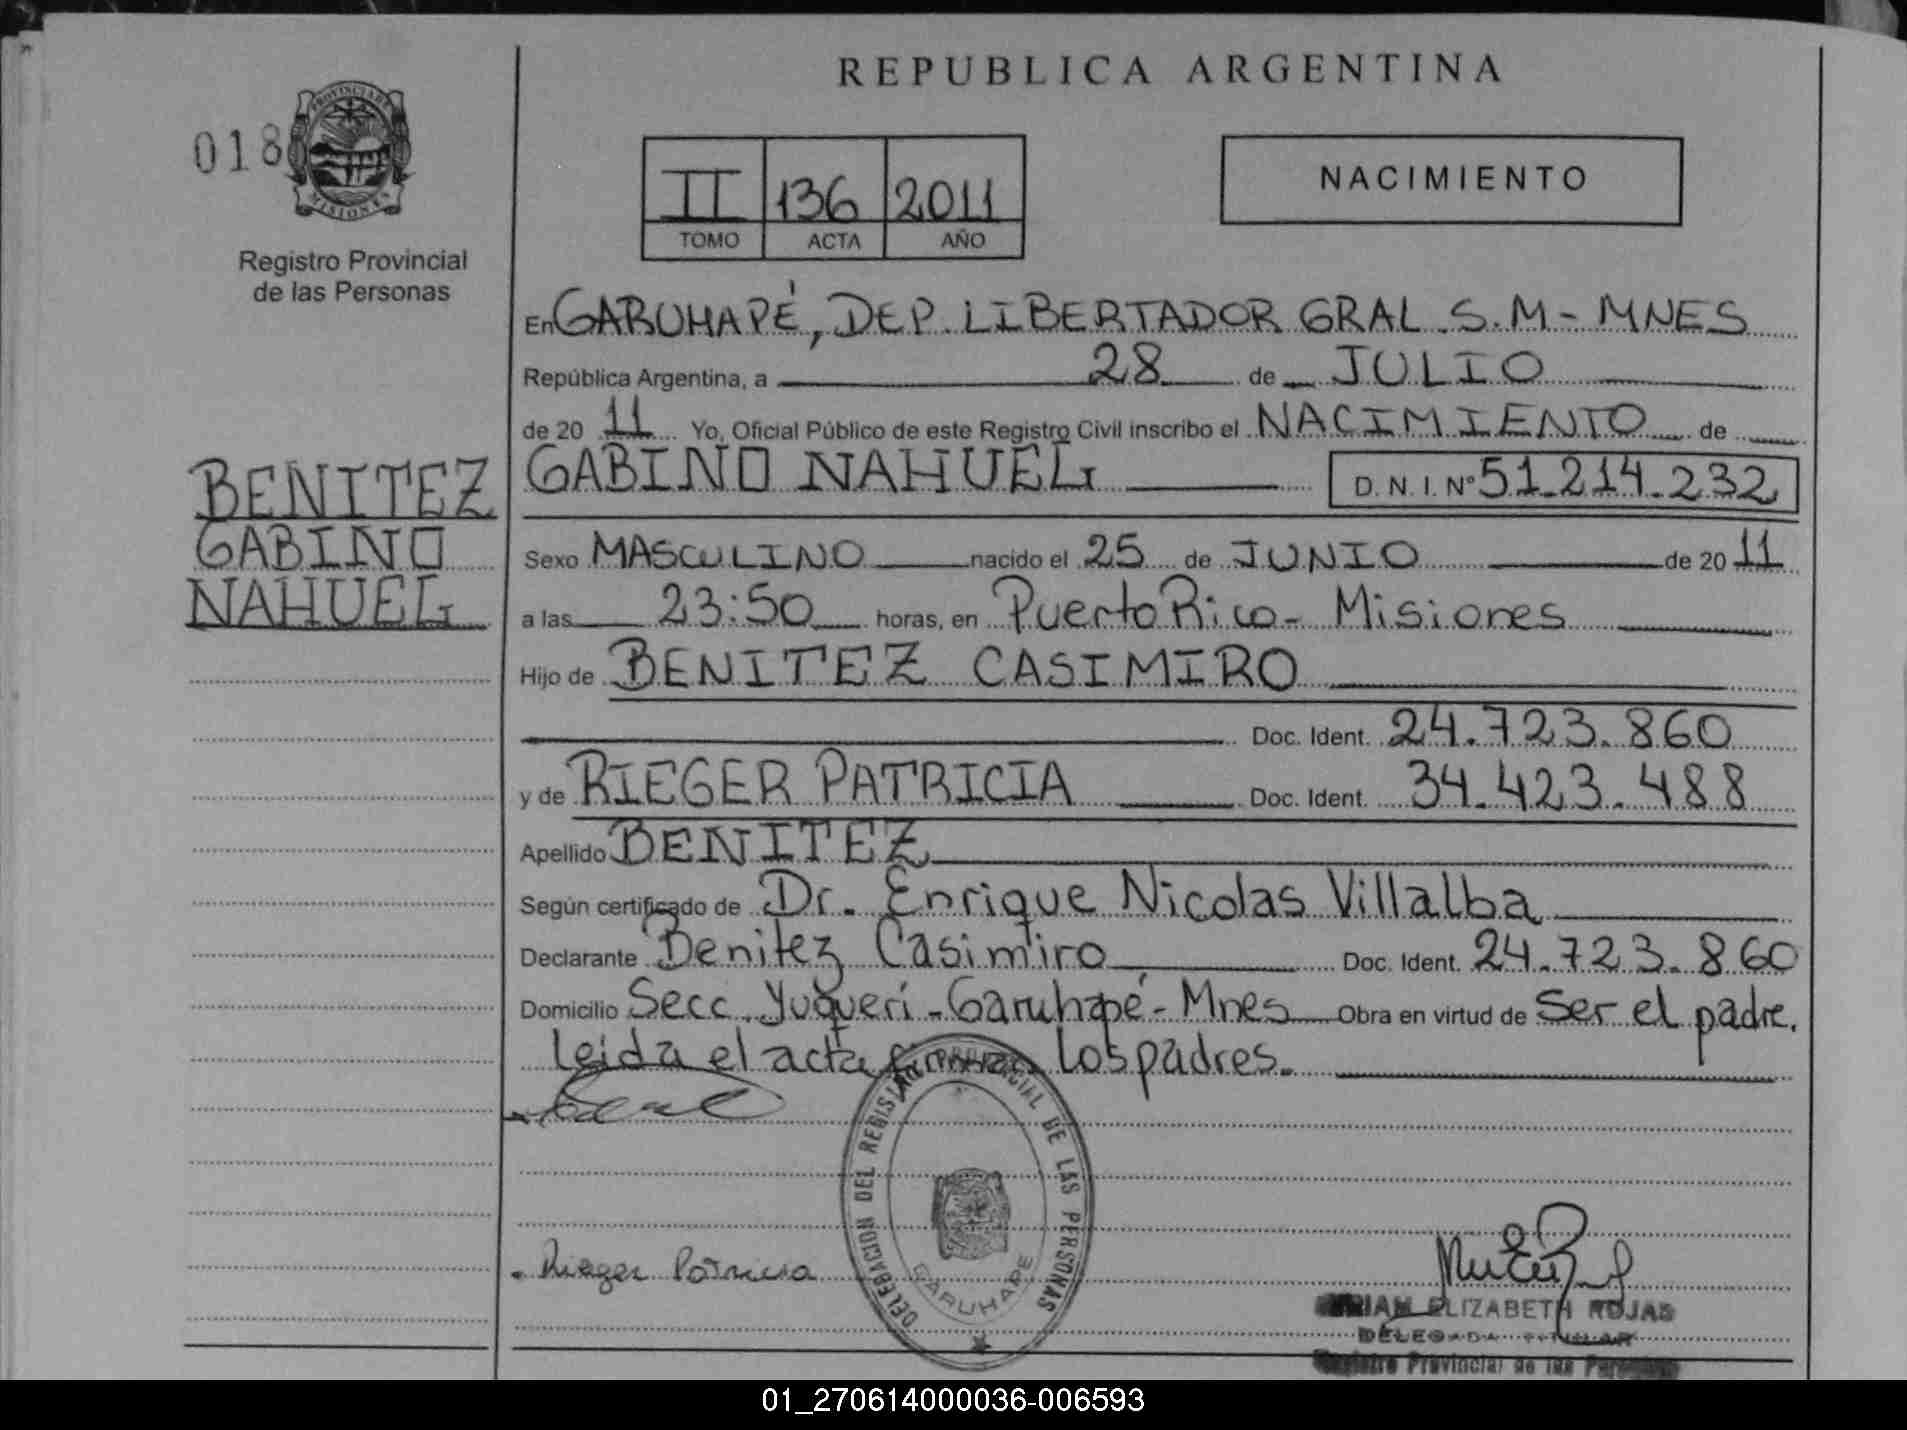 REPUBLICA ARGENTINA
018
PROVINCIA DE
MISIONES
Registro Provincial
de las Personas
II 136 2011
TOMO ACTA AÑO
NACIMIENTO
En GARUHAPÉ, DEP. LIBERTADOR GRAL. S.M - MNES
República Argentina, a 28 de JULIO
de 20 11 Yo, Oficial Público de este Registro Civil inscribo el NACIMIENTO de
BENITEZ
GABINO
NAHUEL
GABINO NAHUEL D. N. I. Nº 51.214.232
Sexo MASCULINO nacido el 25 de JUNIO de 20 11
a las 23:50 horas, en Puerto Rico - Misiones
Hijo de BENITEZ CASIMIRO
Doc. Ident. 24.723.860
y de RIEGER PATRICIA Doc. Ident. 34.423.488
Apellido BENITEZ
Según certificado de Dr. Enrique Nicolas Villalba
Declarante Benitez Casimiro Doc. Ident. 24.723.860
Domicilio Secc. Yuquerí - Garuhapé - Mnes Obra en virtud de Ser el padre.
Leida el acta firman los padres.
DELEGACION DEL REGISTRO PROVINCIAL DE LAS PERSONAS
GARUHAPE
Rieger Patricia
MIRIAM ELIZABETH ROJAS
DELEGADA TITULAR
Registro Provincial de las Personas
01_270614000036-006593